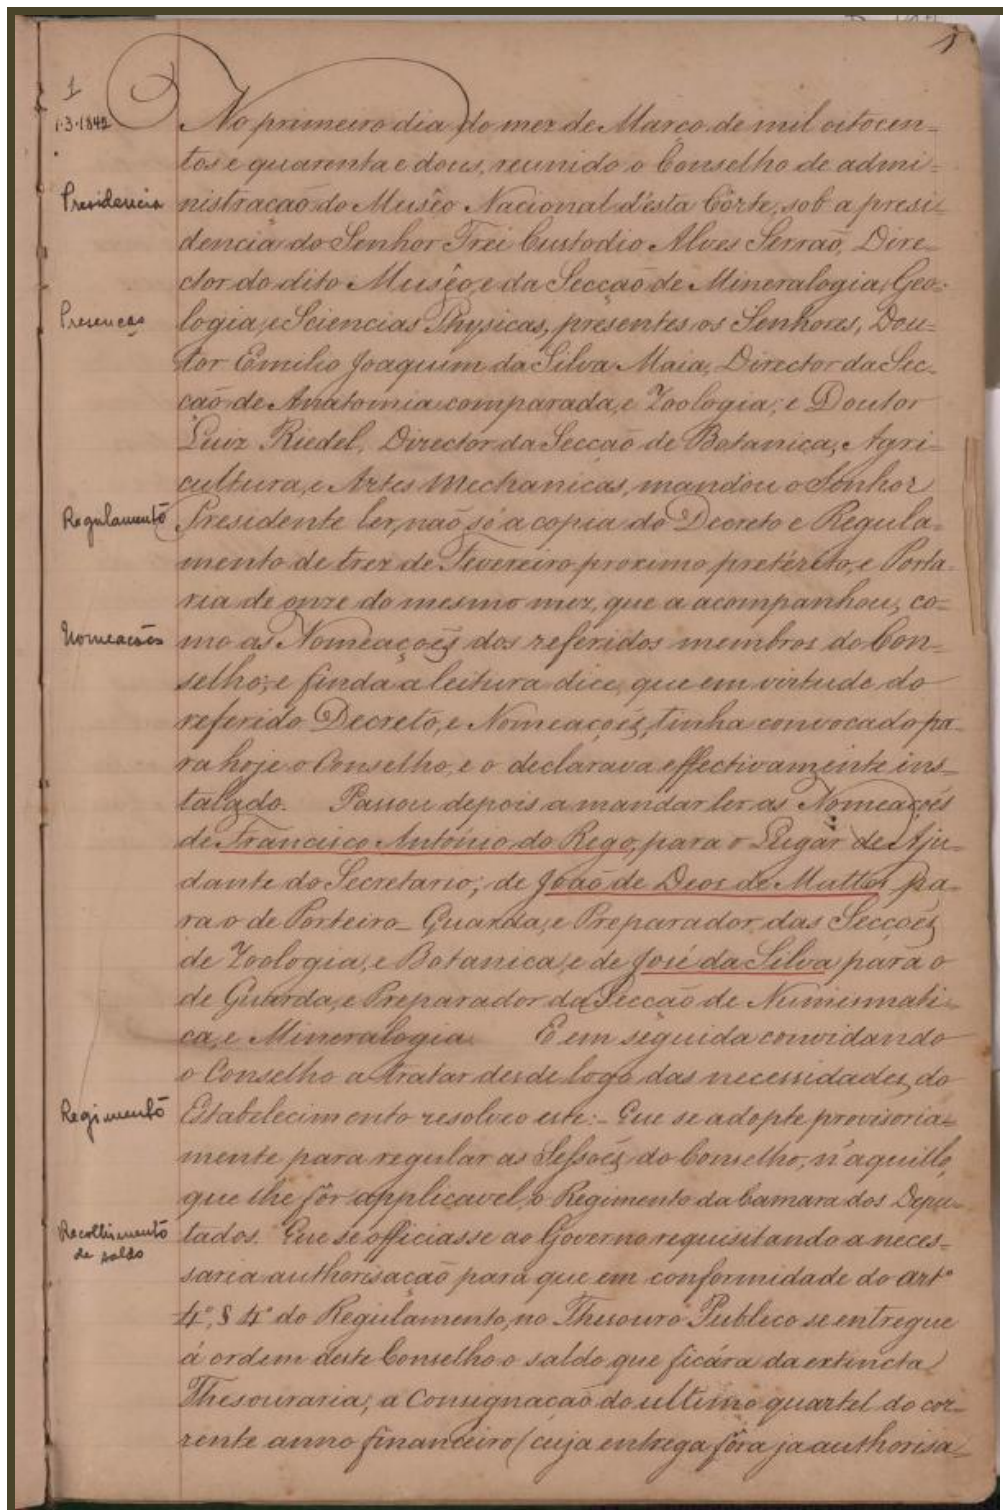 1
1
1.3.1842
No primeiro dia do mez de Março de mil oitocen=
tos e quarenta e dous, reunido o Conselho de admi=
Presidencia
nistração do Musêo Nacional d'esta Côrte, sob a presi=
dencia do Senhor Frei Custodio Alves Serrão, Dire=
ctor do dito Musêo, e da Secção de Mineralogia, Geo=
Presenças
logia, e Sciencias Physicas, presentes os Senhores, Dou=
tor Emilio Joaquim da Silva Maia, Director da Sec=
ção de Anatomia comparada, e Zoologia; e Doutor
Luiz Riedel, Director da Secção de Botanica, Agri=
cultura, e Artes Mechanicas, mandou o Senhor
Regulamento
Presidente ler, não só a copia do Decreto e Regula=
mento de trez de Fevereiro proximo pretérito, e Porta=
ria de onze do mesmo mez, que a acompanhou, co=
Nomeacões
mo as Nomeaçoẽs dos referidos membros do Con=
selho; e finda a leitura dice, que em virtude do
referido Decreto, e Nomeaçoẽs, tinha convocado pa=
ra hoje o Conselho, e o declarava effectivamente ins=
talado. Passou depois a mandar ler as Nomeaçoẽs
de Francisco António do Rego, para o Lugar de Aju=
dante do Secretario; de João de Deos de Mattos, pa=
ra o de Porteiro - Guarda, e Preparador das Secçoẽs
de Zoologia, e Botanica, e de José da Silva, para o
de Guarda, e Preparador da Secção de Numismati=
ca, e Mineralogia. E em seguida convidando
o Conselho a tratar desde logo das necessidades do
Regimento
Estabelecimento resolveo este: - Que se adopte provisoria=
mente para regular as Sessoẽs do Conselho, n'aquillo,
que lhe fôr applicavel, o Regimento da Camara dos Depu=
Recolhimento
de saldo
tados. Que se officiasse ao Governo requisitando a neces=
saria authorisação para que em conformidade do artº
4º, § 4º do Regulamento, no Thesouro Publico se entregue
á ordem deste Conselho o saldo que ficára da extincta
Thesouraria; a Consignação do ultimo quartel do cor=
rente anno financeiro (cuja entrega fôra ja authorisa=